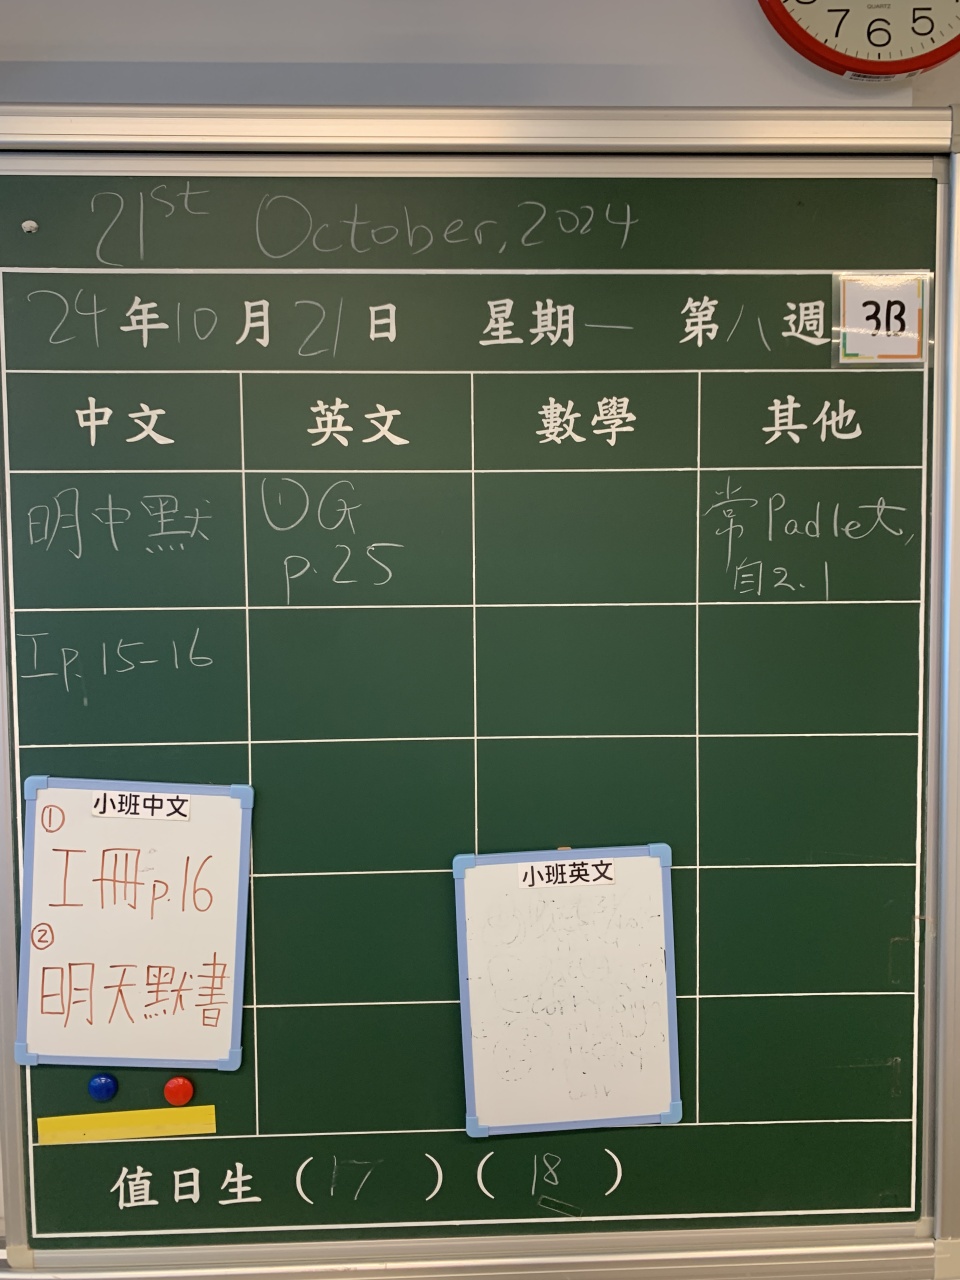 7 6 5
QUARTZ
21st October, 2024
24年10月21日 星期一 第八週 3B
中文 英文 數學 其他
明中默
① G
p.25
常Padlet,
自2.1
工p.15-16
小班中文
①
工冊p.16
②
明天默書
小班英文
值日生 (17) (18)